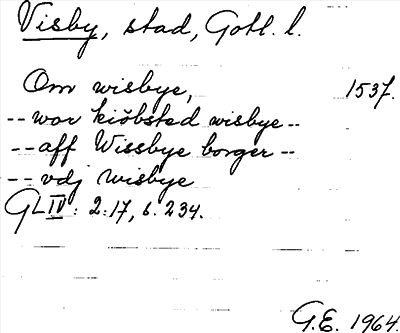 Visby, stad, Gotl. l.
Om wisbye, 1537.
-- wor kiöbsted wisbye --
-- aff Wissbye borger --
-- vdj wisbye
GLIV: 2:17, s. 234.
G.E. 1964.